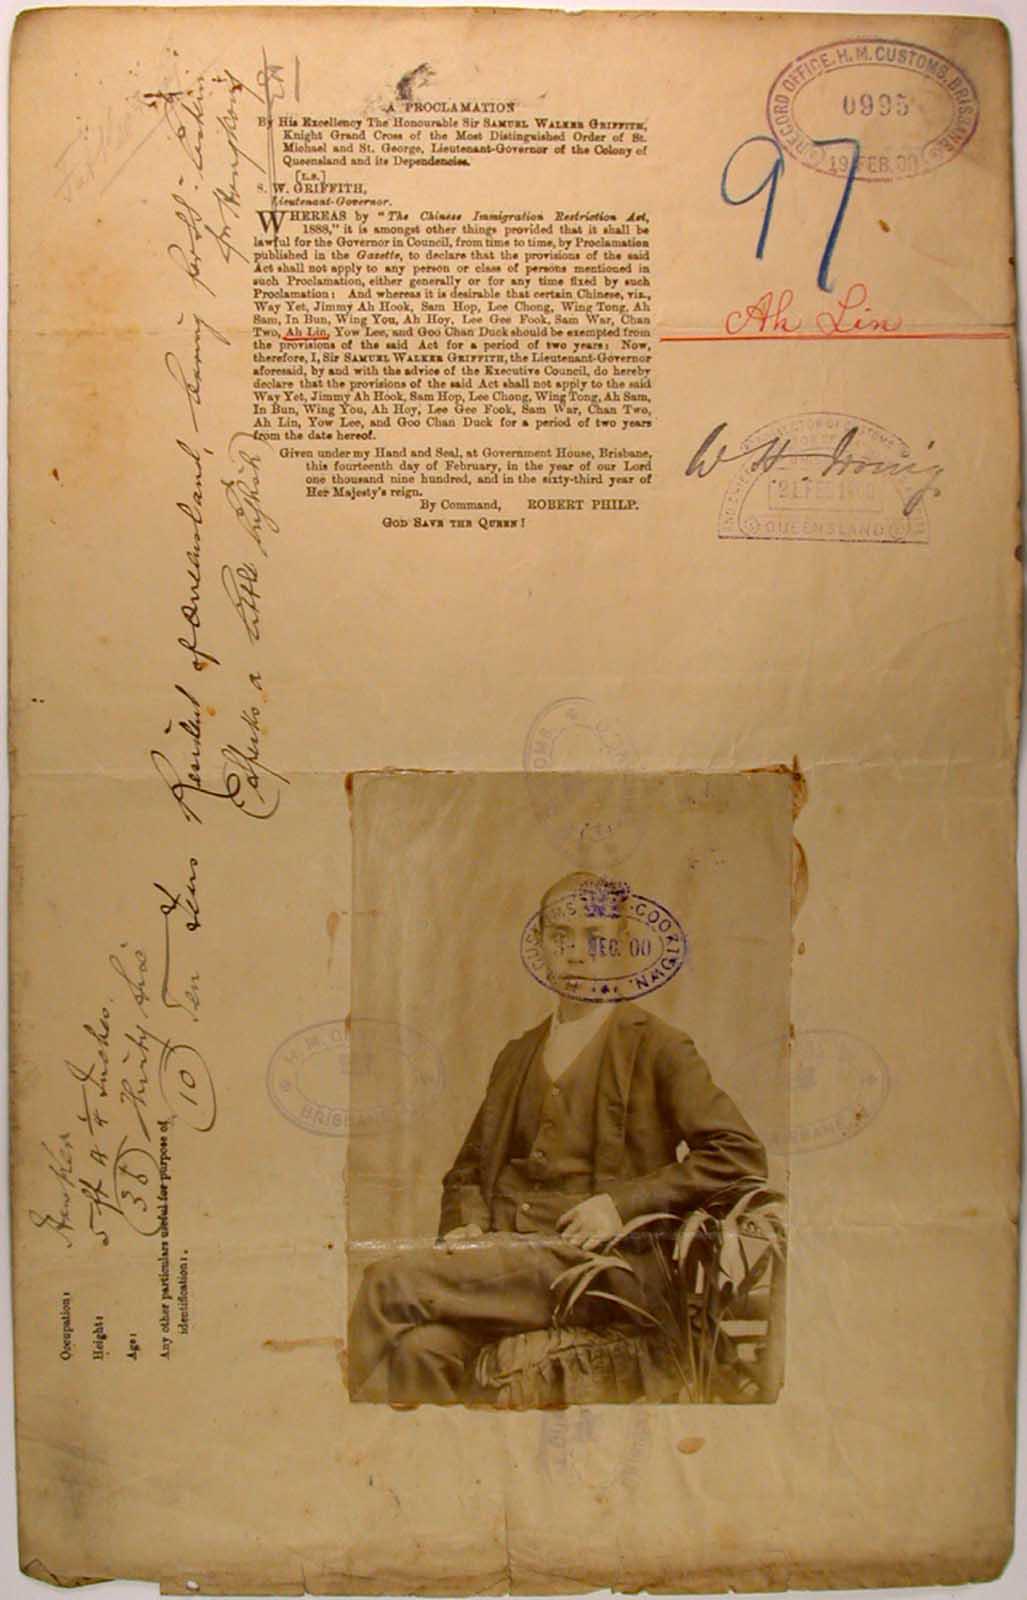 A PROCLAMATION
By His Excellency The Honourable Sir SAMUEL WALKER GRIFFITH,
Knight Grand Cross of the Most Distinguished Order of St.
Michael and St. George, Lieutenant-Governor of the Colony of
Queensland and its Dependencies.
[L.S.]
S. W. GRIFFITH,
Lieutenant-Governor.
WHEREAS by "The Chinese Immigration Restriction Act,
1888," it is amongst other things provided that it shall be
lawful for the Governor in Council, from time to time, by Proclamation
published in the Gazette, to declare that the provisions of the said
Act shall not apply to any person or class of persons mentioned in
such Proclamation, either generally or for any time fixed by such
Proclamation: And whereas it is desirable that certain Chinese, viz.,
Way Yet, Jimmy Ah Hook, Sam Hop, Lee Chong, Wing Tong, Ah
Sam, In Bun, Wing You, Ah Hoy, Lee Gee Fook, Sam War, Chan
Two, Ah Lin, Yow Lee, and Goo Chan Duck should be exempted from
the provisions of the said Act for a period of two years: Now,
therefore, I, Sir SAMUEL WALKER GRIFFITH, the Lieutenant-Governor
aforesaid, by and with the advice of the Executive Council, do hereby
declare that the provisions of the said Act shall not apply to the said
Way Yet, Jimmy Ah Hook, Sam Hop, Lee Chong, Wing Tong, Ah Sam,
In Bun, Wing You, Ah Hoy, Lee Gee Fook, Sam War, Chan Two,
Ah Lin, Yow Lee, and Goo Chan Duck for a period of two years
from the date hereof.
Given under my Hand and Seal, at Government House, Brisbane,
this fourteenth day of February, in the year of our Lord
one thousand nine hundred, and in the sixty-third year of
Her Majesty's reign.
By Command, ROBERT PHILP.
GOD SAVE THE QUEEN!
RECORD OFFICE, H. M. CUSTOMS, BRISBANE
0995
19 FEB. 00
97
Ah Lin
W H Irving
21 FEB 1900
QUEENSLAND
CUSTOMS COOKTOWN
DEC. 00
H. M.
BRISBANE
Occupation: Hawker
Height: 5 ft 4 1/4 Inches
Age: (36) Thirty Six
Any other particulars useful for purpose of
identification:
(10) Ten Years Resident of Queensland, leaving per
for Hongkong
(Speaks a little English)